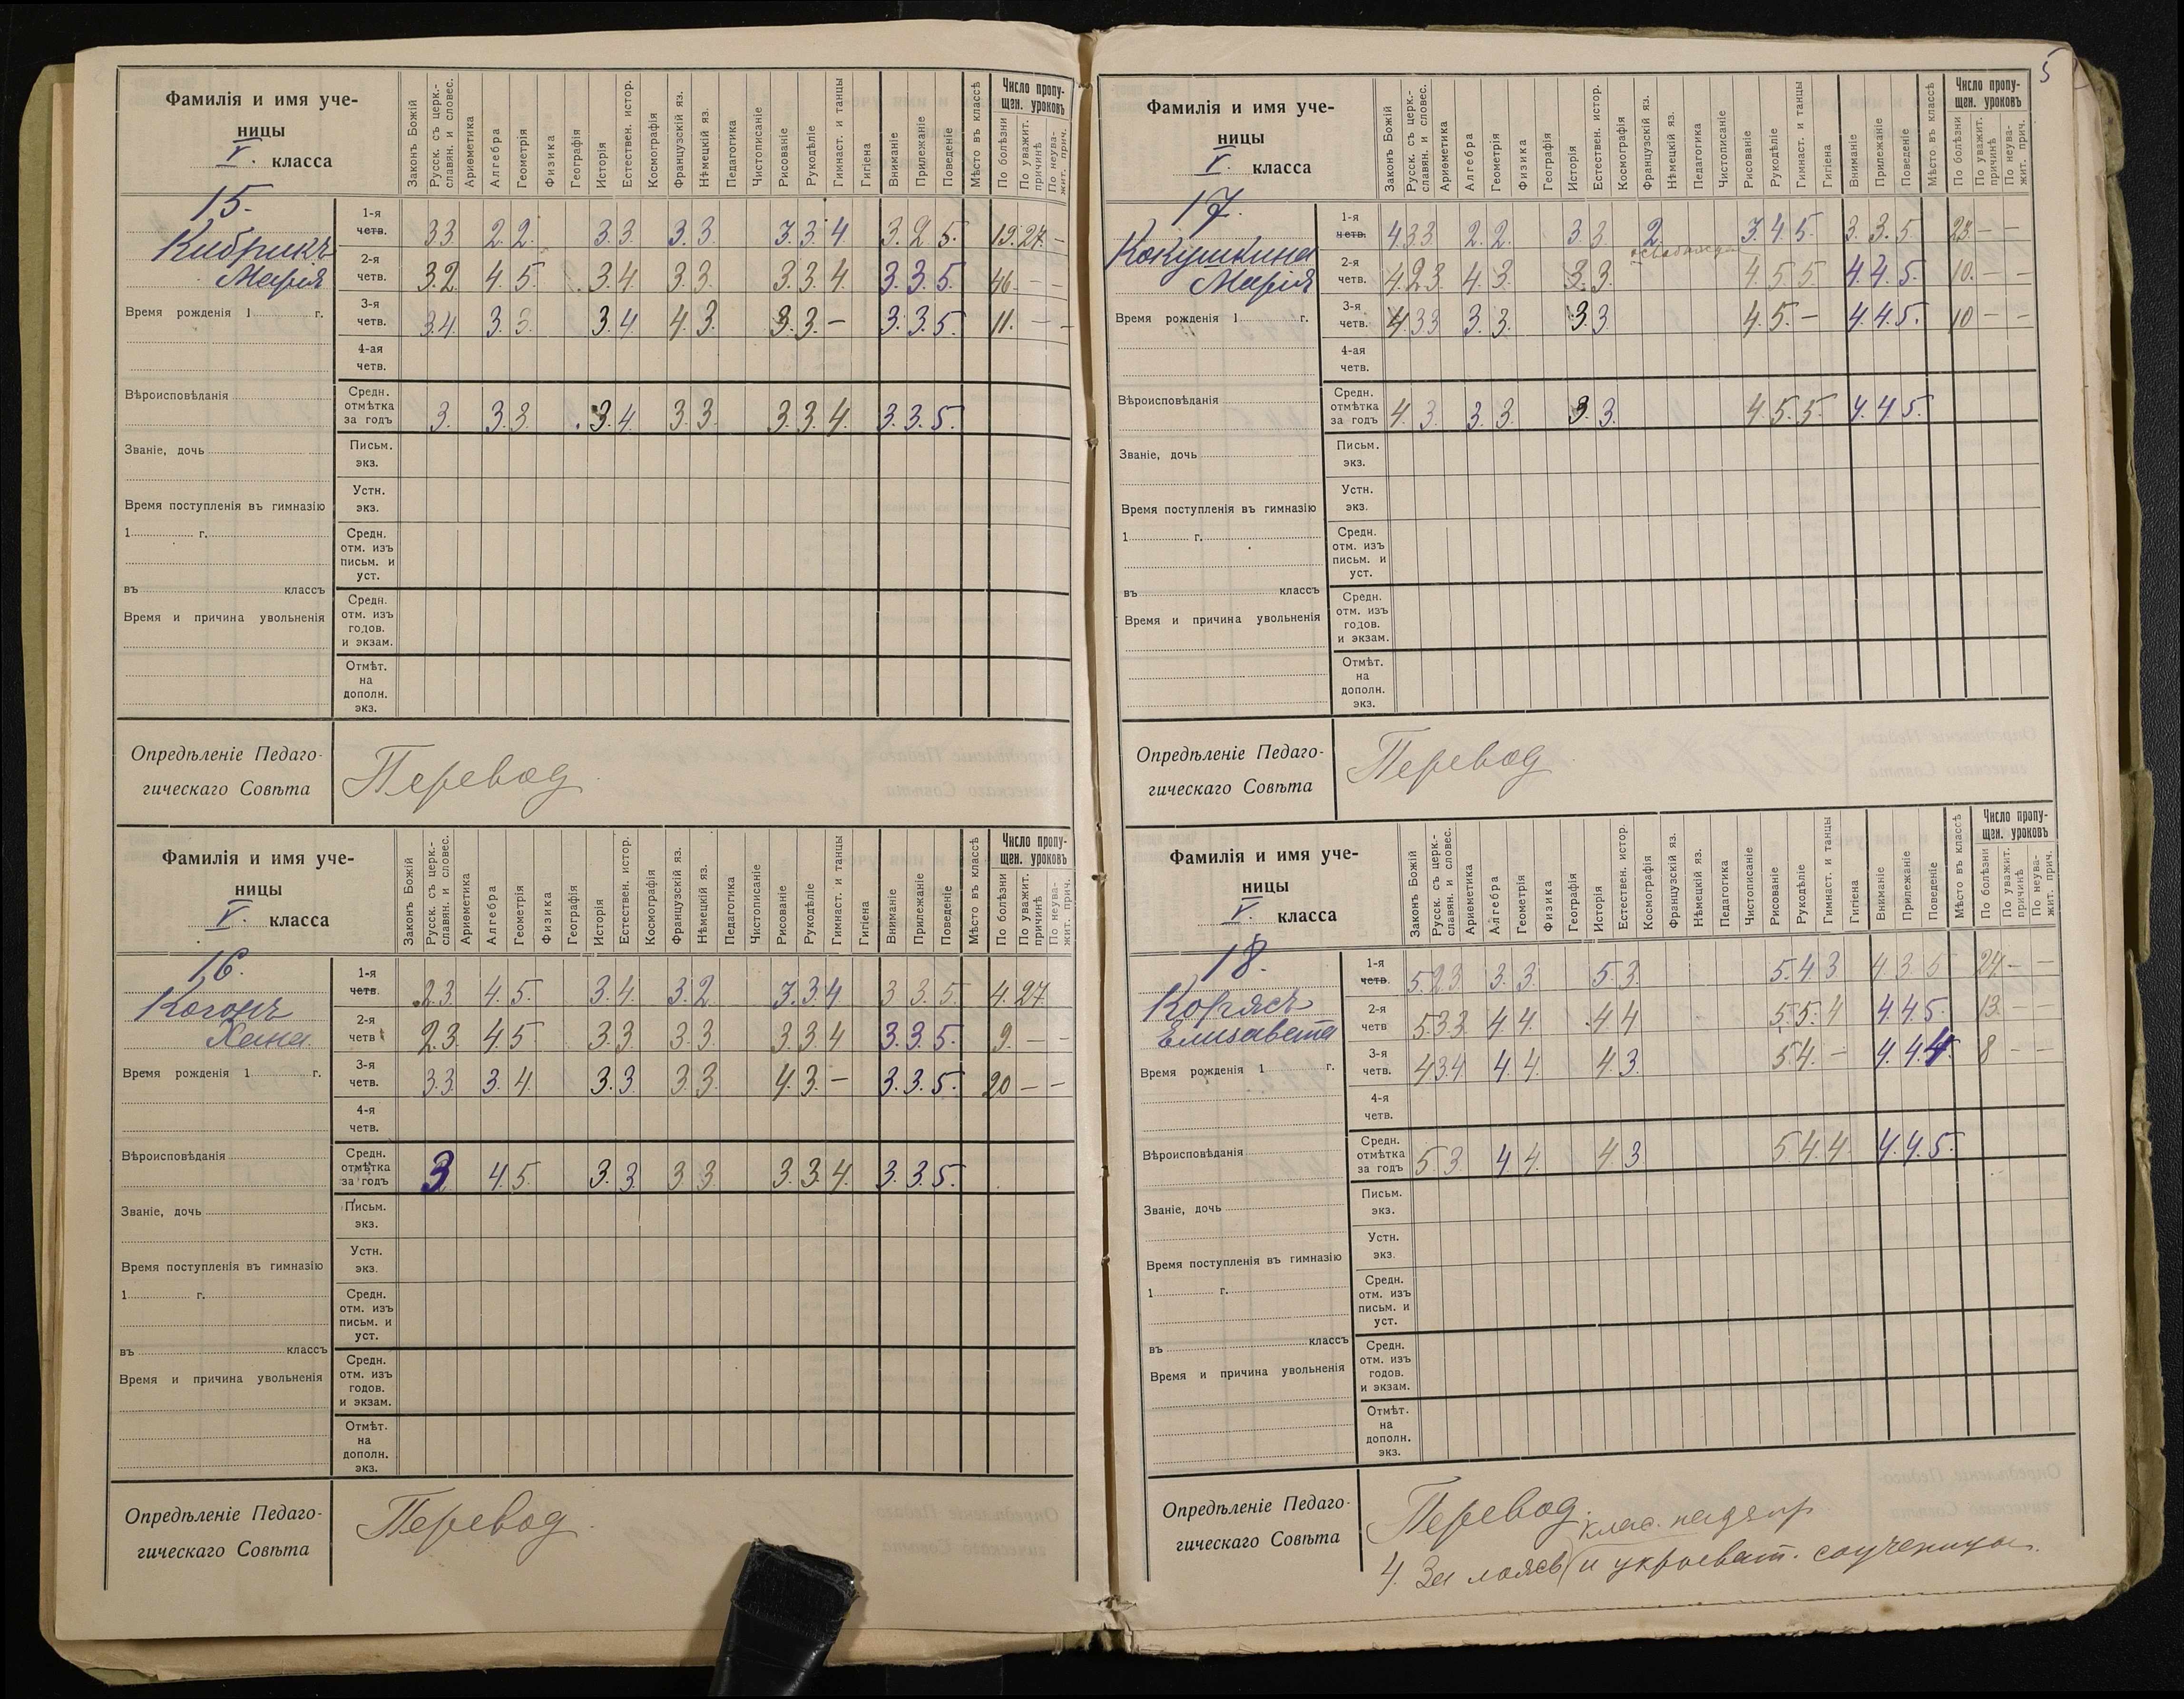 5
Фамилія и имя уче-
ницы
V. класса
Законъ Божій
Русск. съ церк.-
славян. и словес.
Ариѳметика
Алгебра
Геометрія
Физика
Географія
Исторія
Естествен. истор.
Космографія
Французскій яз.
Нѣмецкій яз.
Педагогика
Чистописаніе
Рисованіе
Рукодѣліе
Гимнаст. и танцы
Гигіена
Вниманіе
Прилежаніе
Поведеніе
Мѣсто въ классѣ
Число пропу-
щен. уроковъ
По болѣзни
По уважит.
причинѣ
По неува-
жит. прич.
15.
Кибрикъ
Марія
Время рожденія 1 г.
Вѣроисповѣданія
Званіе, дочь
Время поступленія въ гимназію
1 г.
въ классъ
Время и причина увольненія
1-я четв. 3 3. 2. 2. 3. 3. 3. 3. 3. 3. 4. 3. 2. 5. 19. 27. –
2-я четв. 3. 2. 4. 5. 3. 4. 3. 3. 3. 3. 4. 3. 3. 5. 46. – –
3-я четв. 3. 4. 3. 3. 3. 4. 4. 3. 3. 3. – 3. 3. 5. 11. – –
4-ая четв.
Средн. отмѣтка за годъ 3. 3. 3. 3. 4. 3. 3. 3. 3. 4. 3. 3. 5.
Письм. экз.
Устн. экз.
Средн. отм. изъ письм. и уст.
Средн. отм. изъ годов. и экзам.
Отмѣт. на дополн. экз.
Опредѣленіе Педаго-
гическаго Совѣта
Перевод.
Фамилія и имя уче-
ницы
V. класса
Законъ Божій
Русск. съ церк.-
славян. и словес.
Ариѳметика
Алгебра
Геометрія
Физика
Географія
Исторія
Естествен. истор.
Космографія
Французскій яз.
Нѣмецкій яз.
Педагогика
Чистописаніе
Рисованіе
Рукодѣліе
Гимнаст. и танцы
Гигіена
Вниманіе
Прилежаніе
Поведеніе
Мѣсто въ классѣ
Число пропу-
щен. уроковъ
По болѣзни
По уважит.
причинѣ
По неува-
жит. прич.
16.
Когонъ
Хана.
Время рожденія 1 г.
Вѣроисповѣданія
Званіе, дочь
Время поступленія въ гимназію
1 г.
въ классъ
Время и причина увольненія
1-я четв. 2 3. 4. 5. 3. 4. 3. 2. 3. 3. 4 3 3. 5. 4. 27.
2-я четв 2. 3. 4. 5. 3. 3. 3. 3. 3. 3. 4 3. 3. 5. 9. – –
3-я четв. 3. 3. 3. 4. 3. 3. 3 3. 4. 3. – 3. 3. 5. 20 – –
4-я четв.
Средн. отмѣтка за годъ 3 4. 5. 3. 3. 3 3. 3. 3. 4. 3. 3. 5.
Письм. экз.
Устн. экз.
Средн. отм. изъ письм. и уст.
Средн. отм. изъ годов. и экзам.
Отмѣт. на дополн. экз.
Опредѣленіе Педаго-
гическаго Совѣта
Перевод.
Фамилія и имя уче-
ницы
V. класса
Законъ Божій
Русск. съ церк.-
славян. и словес.
Ариѳметика
Алгебра
Геометрія
Физика
Географія
Исторія
Естествен. истор.
Космографія
Французскій яз.
Нѣмецкій яз.
Педагогика
Чистописаніе
Рисованіе
Рукодѣліе
Гимнаст. и танцы
Гигіена
Вниманіе
Прилежаніе
Поведеніе
Мѣсто въ классѣ
Число пропу-
щен. уроковъ
По болѣзни
По уважит.
причинѣ
По неува-
жит. прич.
17.
Кокушкина
Марія
Время рожденія 1 г.
Вѣроисповѣданія
Званіе, дочь
Время поступленія въ гимназію
1 г.
въ классъ
Время и причина увольненія
1-я четв. 4. 3 3 2. 2. 3 3. 2. 3. 4. 5. 3. 3. 5 23. – –
2-я четв. 4. 2 3. 4. 3. 3. 3. 4. 5 5. 4. 4. 5. 10. – –
3-я четв. 4. 3 3 3. 3. 3 3. 4. 5. – 4. 4. 5. 10 – –
4-ая четв.
Средн. отмѣтка за годъ 4. 3. 3. 3. 3. 3. 4. 5. 5. 4. 4. 5.
Письм. экз.
Устн. экз.
Средн. отм. изъ письм. и уст.
Средн. отм. изъ годов. и экзам.
Отмѣт. на дополн. экз.
Опредѣленіе Педаго-
гическаго Совѣта
Перевод.
Фамилія и имя уче-
ницы
V. класса
Законъ Божій
Русск. съ церк.-
славян. и словес.
Ариѳметика
Алгебра
Геометрія
Физика
Географія
Исторія
Естествен. истор.
Космографія
Французскій яз.
Нѣмецкій яз.
Педагогика
Чистописаніе
Рисованіе
Рукодѣліе
Гимнаст. и танцы
Гигіена
Вниманіе
Прилежаніе
Поведеніе
Мѣсто въ классѣ
Число пропу-
щен. уроковъ
По болѣзни
По уважит.
причинѣ
По неува-
жит. прич.
18.
Корясъ
Елизавета
Время рожденія 1 г.
Вѣроисповѣданія
Званіе, дочь
Время поступленія въ гимназію
1 г.
въ классъ
Время и причина увольненія
1-я четв. 5. 2 3. 3. 3. 5. 3. 5. 4 3 4 3 5 24. – –
2-я четв 5. 3 3. 4 4. 4 4 5. 5. 4 4. 4. 5. 13. – –
3-я четв. 4. 3. 4 4. 4. 4. 3. 5 4. – 4. 4. 4. 8 – –
4-я четв.
Средн. отмѣтка за годъ 5. 3. 4 4. 4. 3 5. 4. 4. 4. 4. 5.
Письм. экз.
Устн. экз.
Средн. отм. изъ письм. и уст.
Средн. отм. изъ годов. и экзам.
Отмѣт. на дополн. экз.
Опредѣленіе Педаго-
гическаго Совѣта
Перевод.
клас. надзир
4. За и укрыват. соученицы.